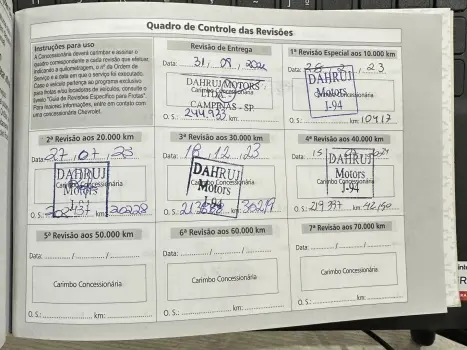 Quadro de Controle das Revisões
Instruções para uso
A Concessionária deverá carimbar e assinar o
quadro correspondente a cada revisão que efetuar,
indicando a quilometragem, o nº da Ordem de
Serviço e a data em que o serviço foi executado.
Caso o veículo pertença ao programa exclusivo
para frotas e/ou locadoras de veículos, consulte o
livreto "Guia de Revisões Específico para Frotas".
Para maiores informações, entre em contato com
uma concessionária Chevrolet.
Revisão de Entrega
Data: 31
DAHRUJ MOTORS
LTDA
CAMPINAS - SP
O. S.: 244.933
1ª Revisão Especial aos 10.000 km
Data: 2 23
DAHRUJ
Motors
J-94
O. S.: km: 10417
2ª Revisão aos 20.000 km
Data: 27 / 07 / 23
DAHRUJ
Carimbo Concessionária
Motors
O. S.: km: 20228
3ª Revisão aos 30.000 km
Data: 18 / 12 / 23
DAHRUJ
Motors
J-94
O. S.: km: 30219
4ª Revisão aos 40.000 km
Data: 15
DAHRUJ
Motors
J-94
O. S.: 219.397 km: 42.150
5ª Revisão aos 50.000 km
Data: / /
Carimbo Concessionária
O. S.: km:
6ª Revisão aos 60.000 km
Data: / /
Carimbo Concessionária
O. S.: km:
7ª Revisão aos 70.000 km
Data: / /
Carimbo Concessionária
O. S.: km: